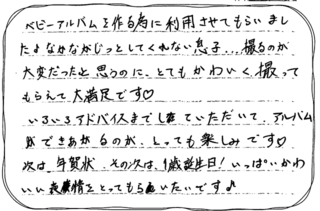 ベビーアルバムを作る為に利用させてもらいまし
たよ なかなかじっとしてくれない息子...撮るのが
大変だったと思うのに、とてもかわいく撮って
もらえて大満足です♡
いろいろアドバイスまでしていただいて、アルバム
ができあがるのが、とっても楽しみです♡
次は、年賀状、その次は、1歳誕生日!いっぱいかわ
いい表情をとってもらいたいです♪